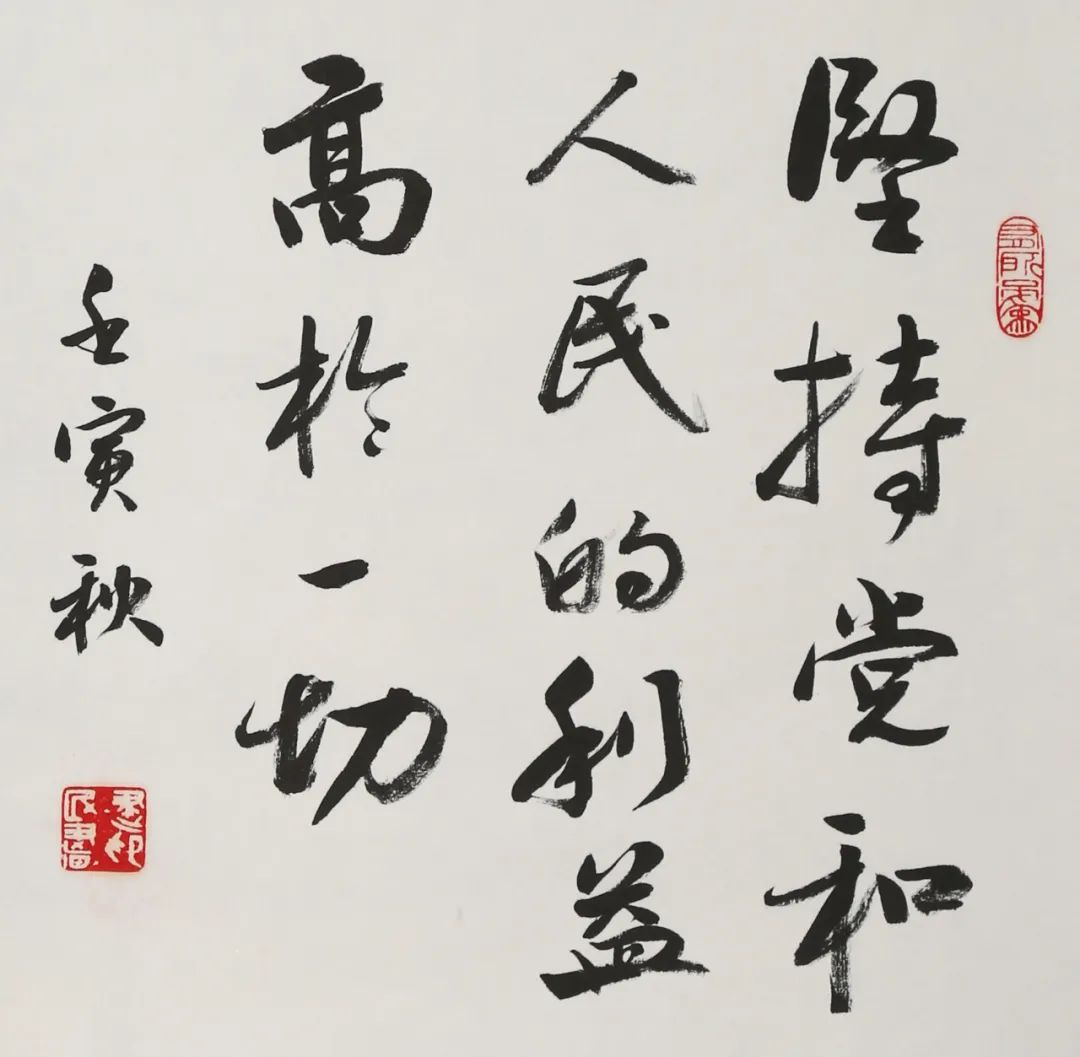 堅持党和
人民的利益
高於一切
壬寅秋